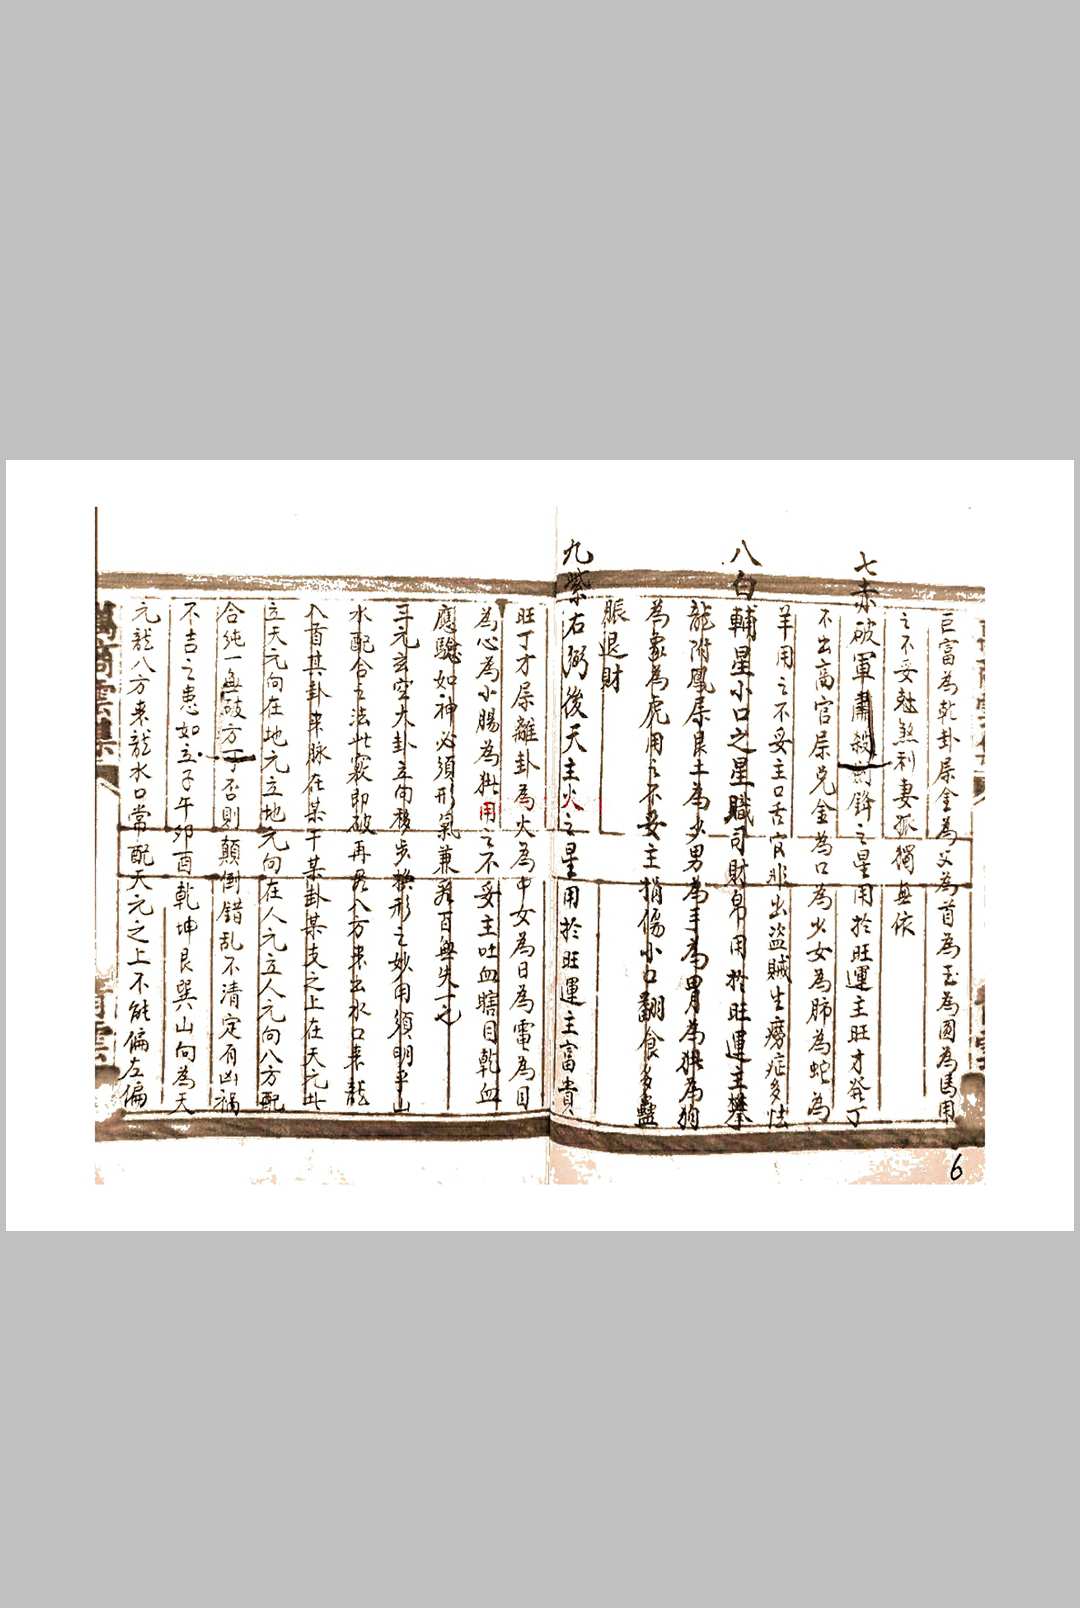 巨富為乾卦屬金為父為首為玉為國為馬用
之不妥尅煞刑妻孤獨無依
七赤破軍肅殺劍鋒之星用於旺運主旺才發丁
不出高官屬兌金為口為少女為肺為蛇為
羊用之不妥主口舌官非出盜賊生癆症多法
八白輔星小口之星職司財帛用於旺運主攀
龍附鳳屬艮土為少男為手為胃為狗
為象為虎用之不妥主損傷小口翻食多蠱
脹退財
九紫右弼後天主火之星用於旺運主富貴
旺丁才屬離卦為火為中女為日為電為目
為心為小腸為 用之不妥主吐血瞎目乾血
應驗如神必須形氣兼察百無失一之
三元玄空大卦立向移步換形之妙用須明平山
水配合之法此竅即破再察八方來出水口來龍
入首其卦來脉在某干某卦某支之上在天元此
立天元向在地元立地元向在人元立人元向八方配
合純一無破方可否則顛倒錯乱不清定有凶禍
不吉之患如立子午卯酉乾坤艮巽山向為天
元龍八方来龍水口當配天元之上不能偏左偏
6